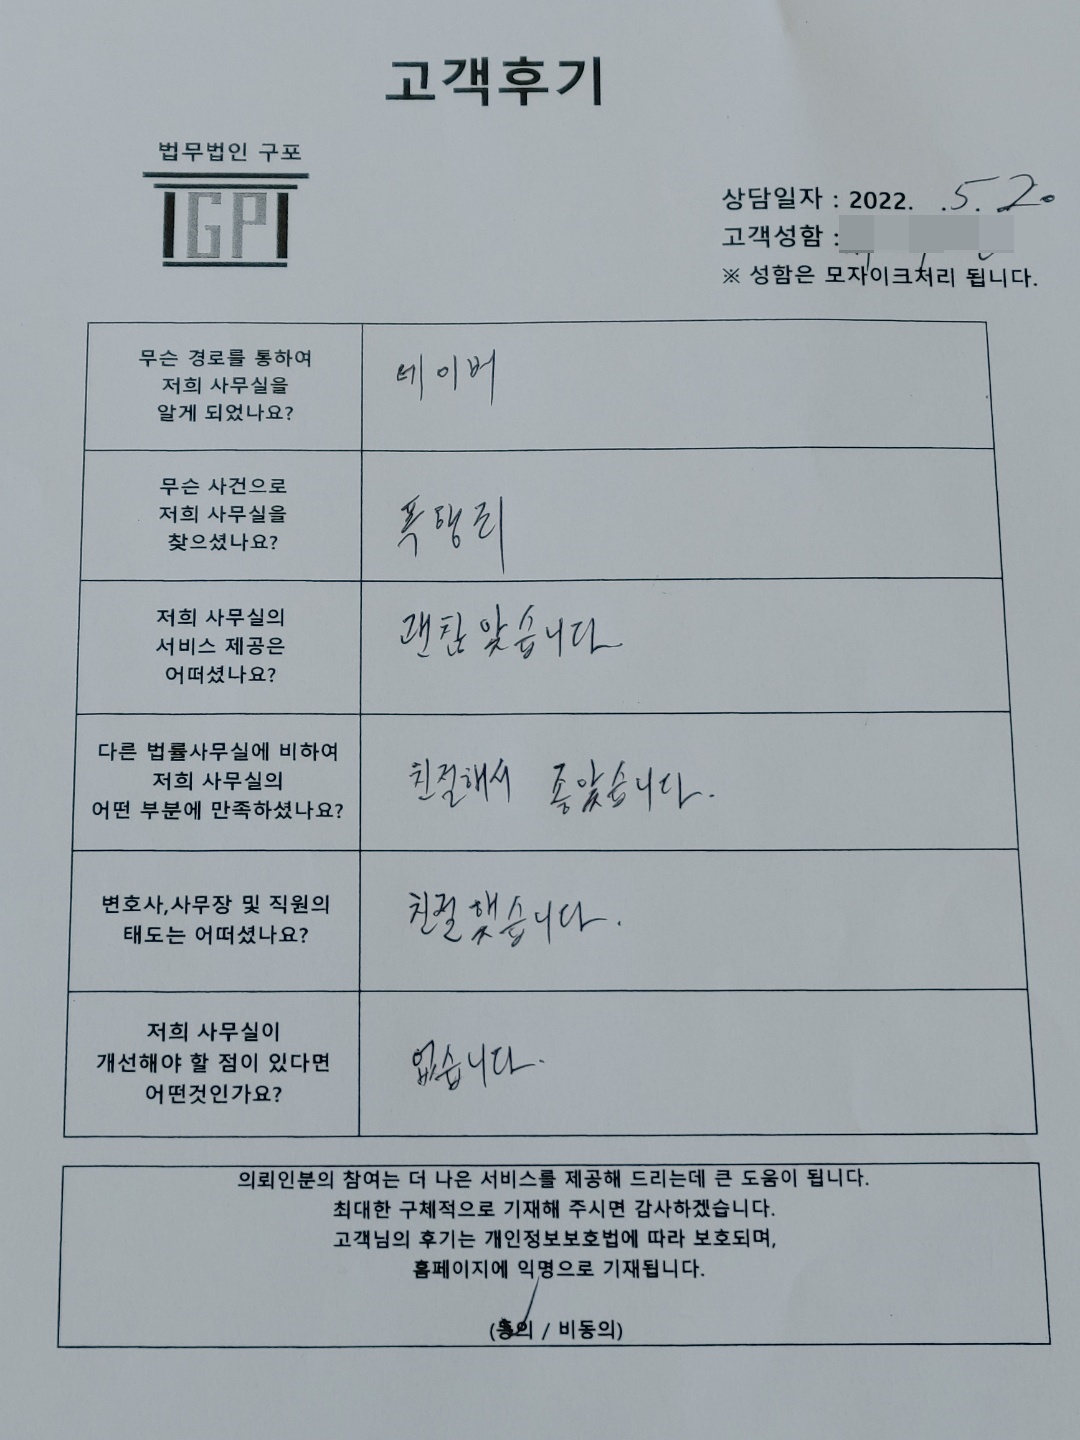 고객후기
법무법인 구포
GP
상담일자 : 2022. .5.2.
고객성함 :
※ 성함은 모자이크처리 됩니다.
무슨 경로를 통하여
저희 사무실을
알게 되었나요?
네이버
무슨 사건으로
저희 사무실을
찾으셨나요?
폭행죄
저희 사무실의
서비스 제공은
어떠셨나요?
괜찬았습니다
다른 법률사무실에 비하여
저희 사무실의
어떤 부분에 만족하셨나요?
친절해서 좋았습니다.
변호사,사무장 및 직원의
태도는 어떠셨나요?
친절했습니다.
저희 사무실이
개선해야 할 점이 있다면
어떤것인가요?
없습니다.
의뢰인분의 참여는 더 나은 서비스를 제공해 드리는데 큰 도움이 됩니다.
최대한 구체적으로 기재해 주시면 감사하겠습니다.
고객님의 후기는 개인정보보호법에 따라 보호되며,
홈페이지에 익명으로 기재됩니다.
(동의 / 비동의)